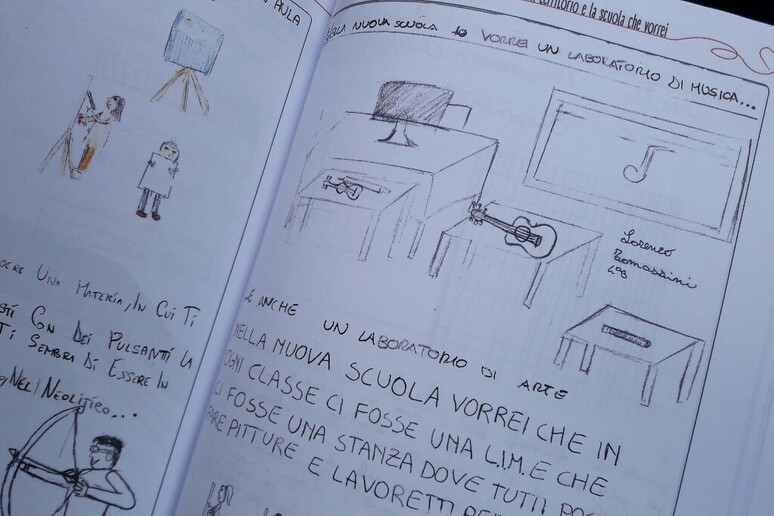 AULA
ERE UNA MATERIA, IN CUI TI
CON DEI PULSANTI LA
TI SEMBRA DI ESSERE IN
NEL NEOLITICO...
territorio e la scuola che vorrei
NELLA NUOVA SCUOLA IO VORREI UN LABORATORIO DI MUSICA...
Lorenzo
Tomassini
E ANCHE UN LABORATORIO DI ARTE
NELLA NUOVA SCUOLA VORREI CHE IN
OGNI CLASSE CI FOSSE UNA L.I.M. E CHE
CI FOSSE UNA STANZA DOVE TUTTI
FARE PITTURE E LAVORETTI